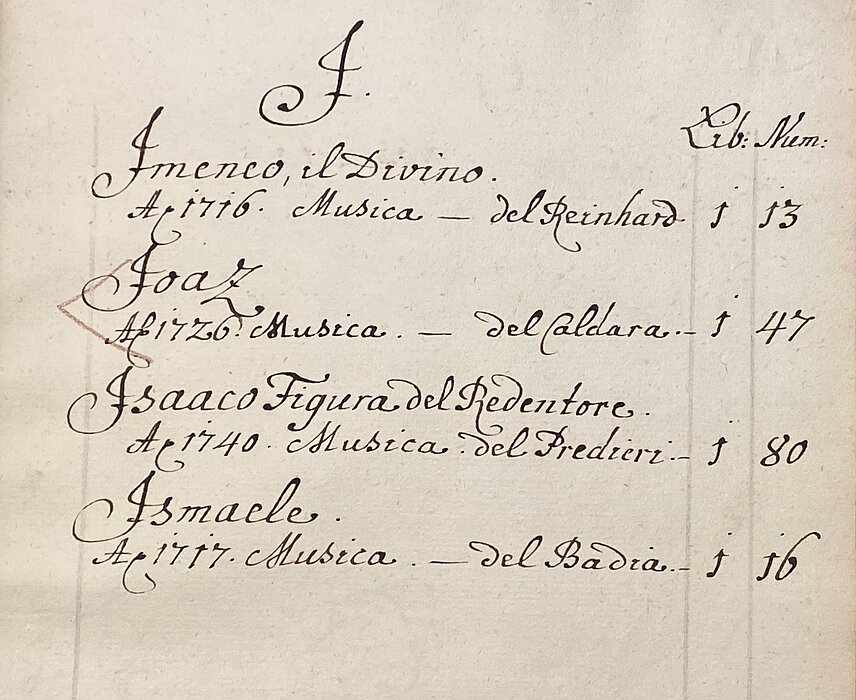 J.
Lib: Num:
Jmeneo, il Divino.
Aº 1716. Musica — del Reinhard 1 13
Joaz
Aº 1726. Musica. — del Caldara. – 1 47
Jsaaco Figura del Redentore.
Aº 1740. Musica. del Predieri. – 1 80
Jsmaele.
Aº 1717. Musica. — del Badia. – 1 16